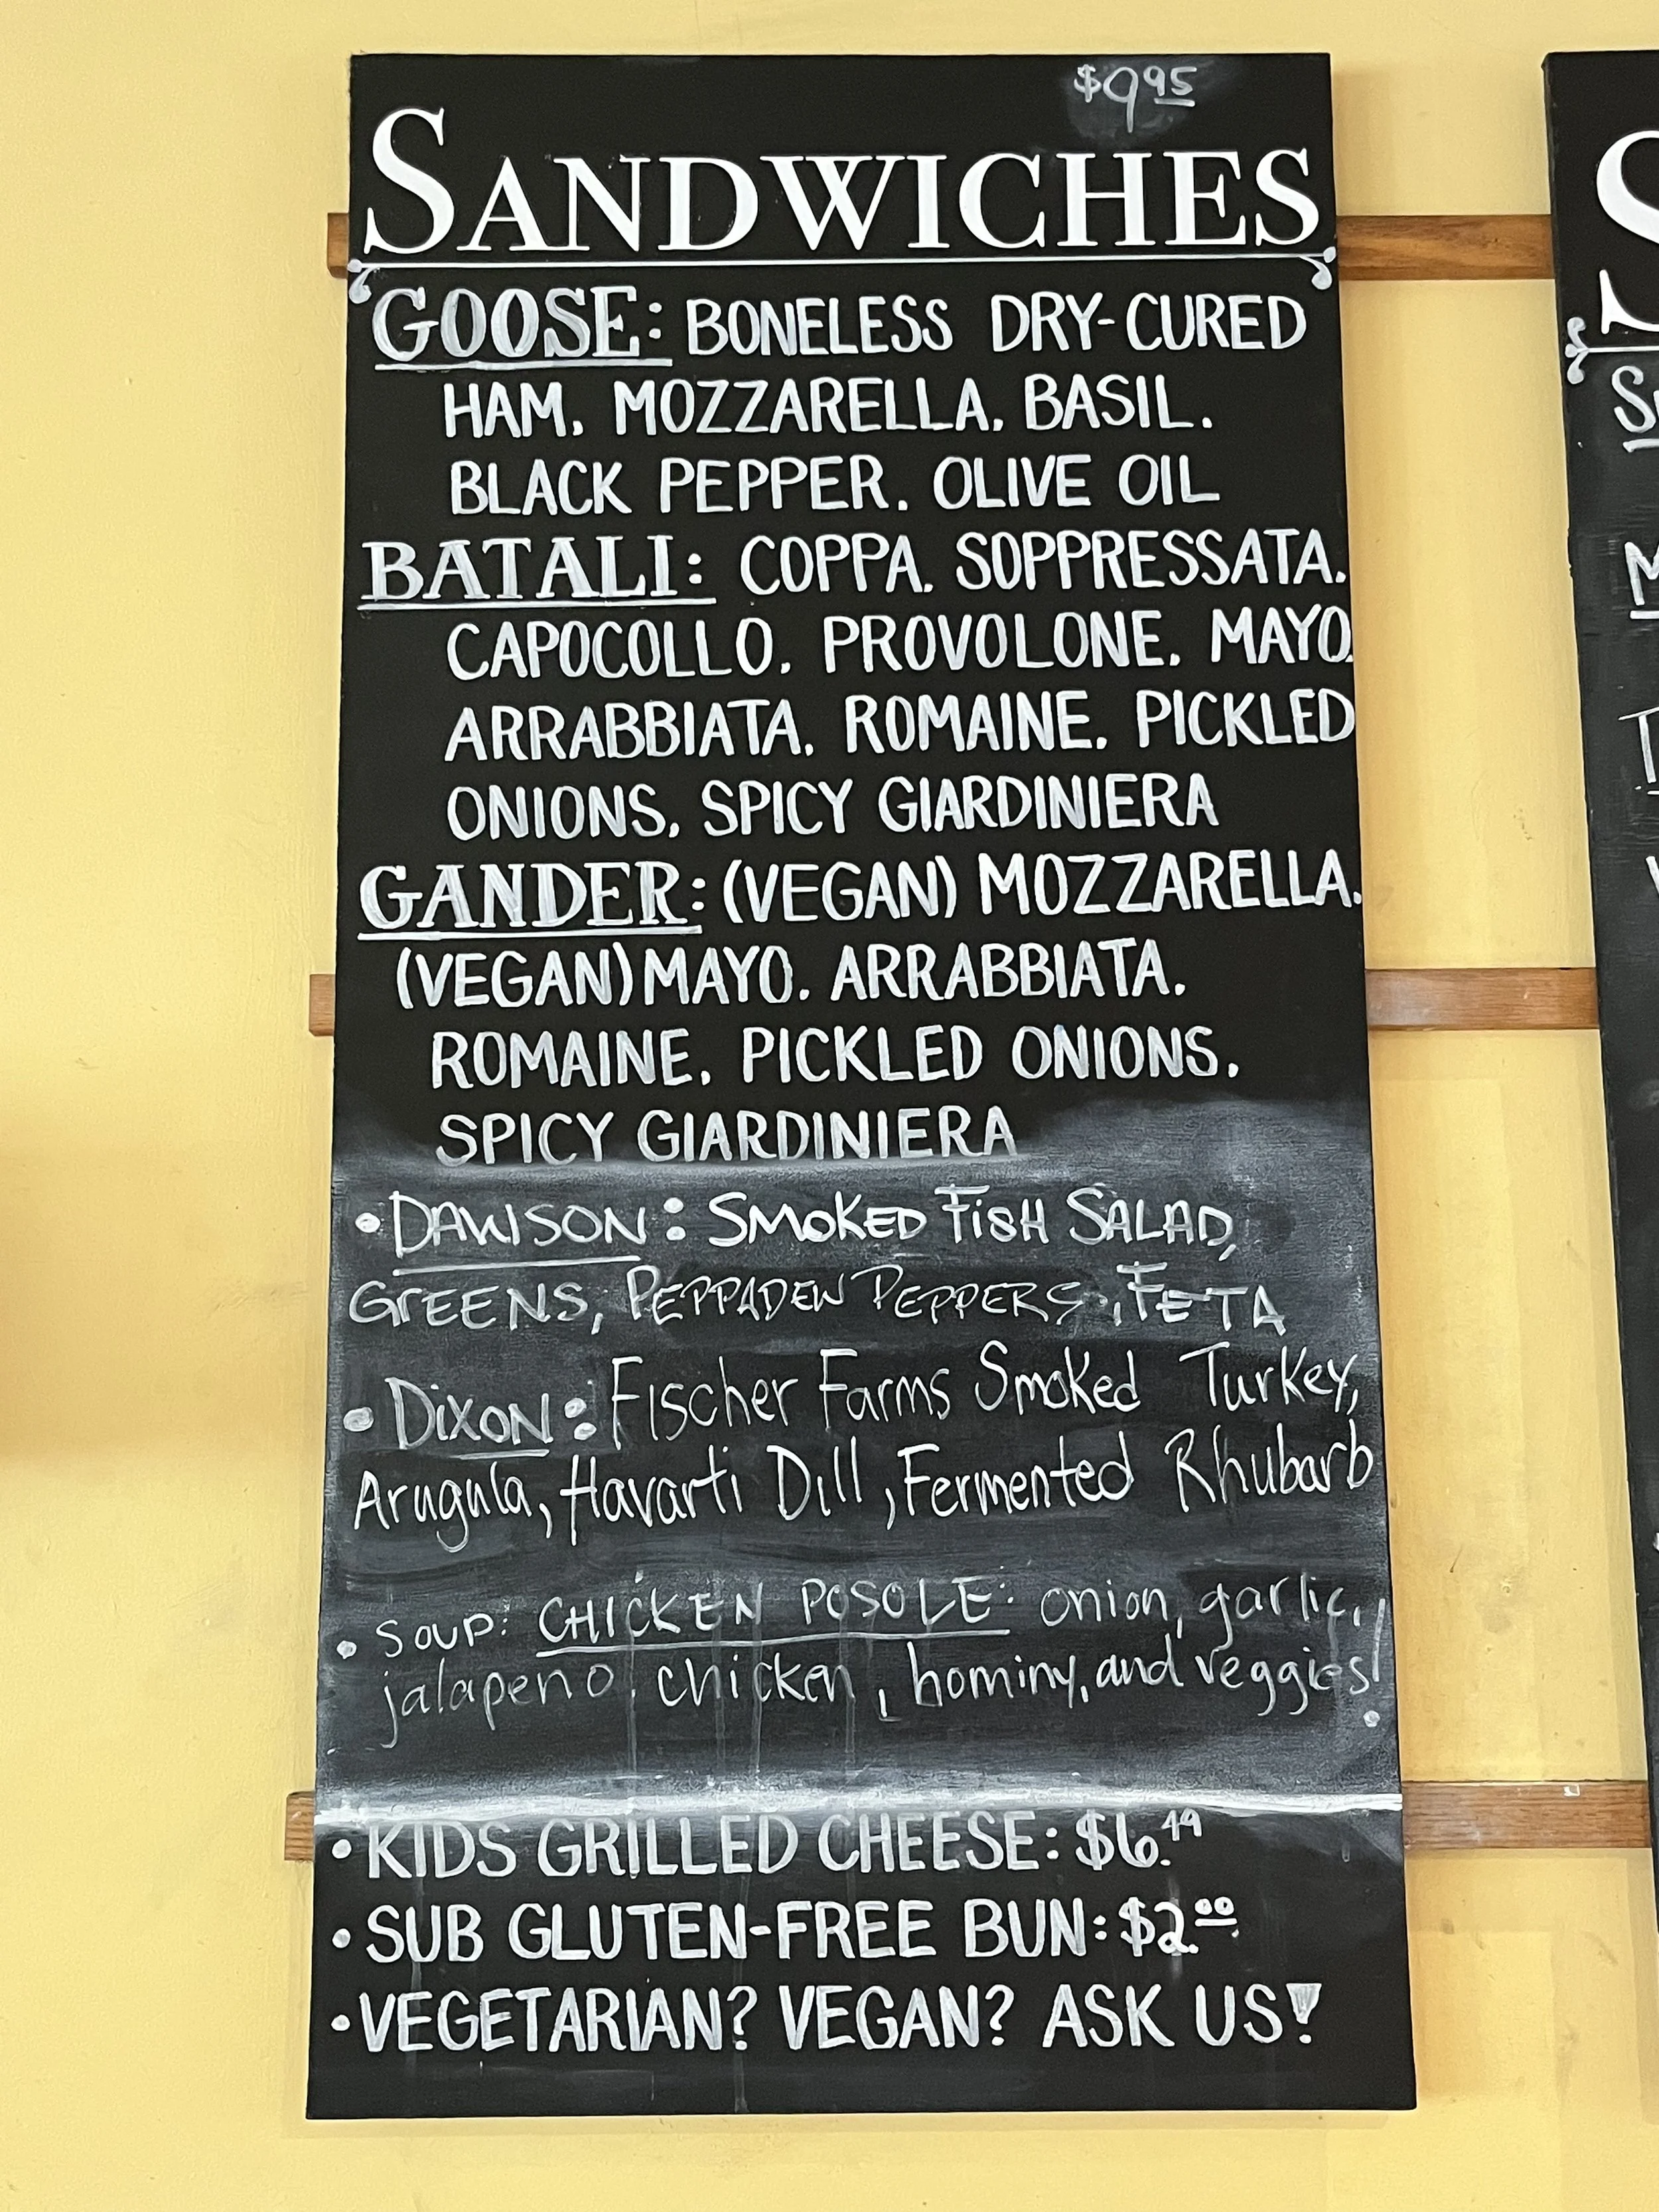 $9.95
SANDWICHES
GOOSE: BONELESS DRY-CURED
HAM, MOZZARELLA, BASIL,
BLACK PEPPER, OLIVE OIL
BATALI: COPPA, SOPPRESSATA,
CAPOCOLLO, PROVOLONE, MAYO,
ARRABBIATA, ROMAINE, PICKLED
ONIONS, SPICY GIARDINIERA
GANDER: (VEGAN) MOZZARELLA,
(VEGAN) MAYO, ARRABBIATA,
ROMAINE, PICKLED ONIONS,
SPICY GIARDINIERA
• DAWSON: SMOKED FISH SALAD,
GREENS, PEPPADEW PEPPERS, FETA
• DIXON: Fischer Farms Smoked Turkey,
Arugula, Havarti Dill, Fermented Rhubarb
• SOUP: CHICKEN POSOLE: onion, garlic,
jalapeno, chicken, hominy, and veggies!
• KIDS GRILLED CHEESE: $6.49
• SUB GLUTEN-FREE BUN: $2.00
• VEGETARIAN? VEGAN? ASK US!